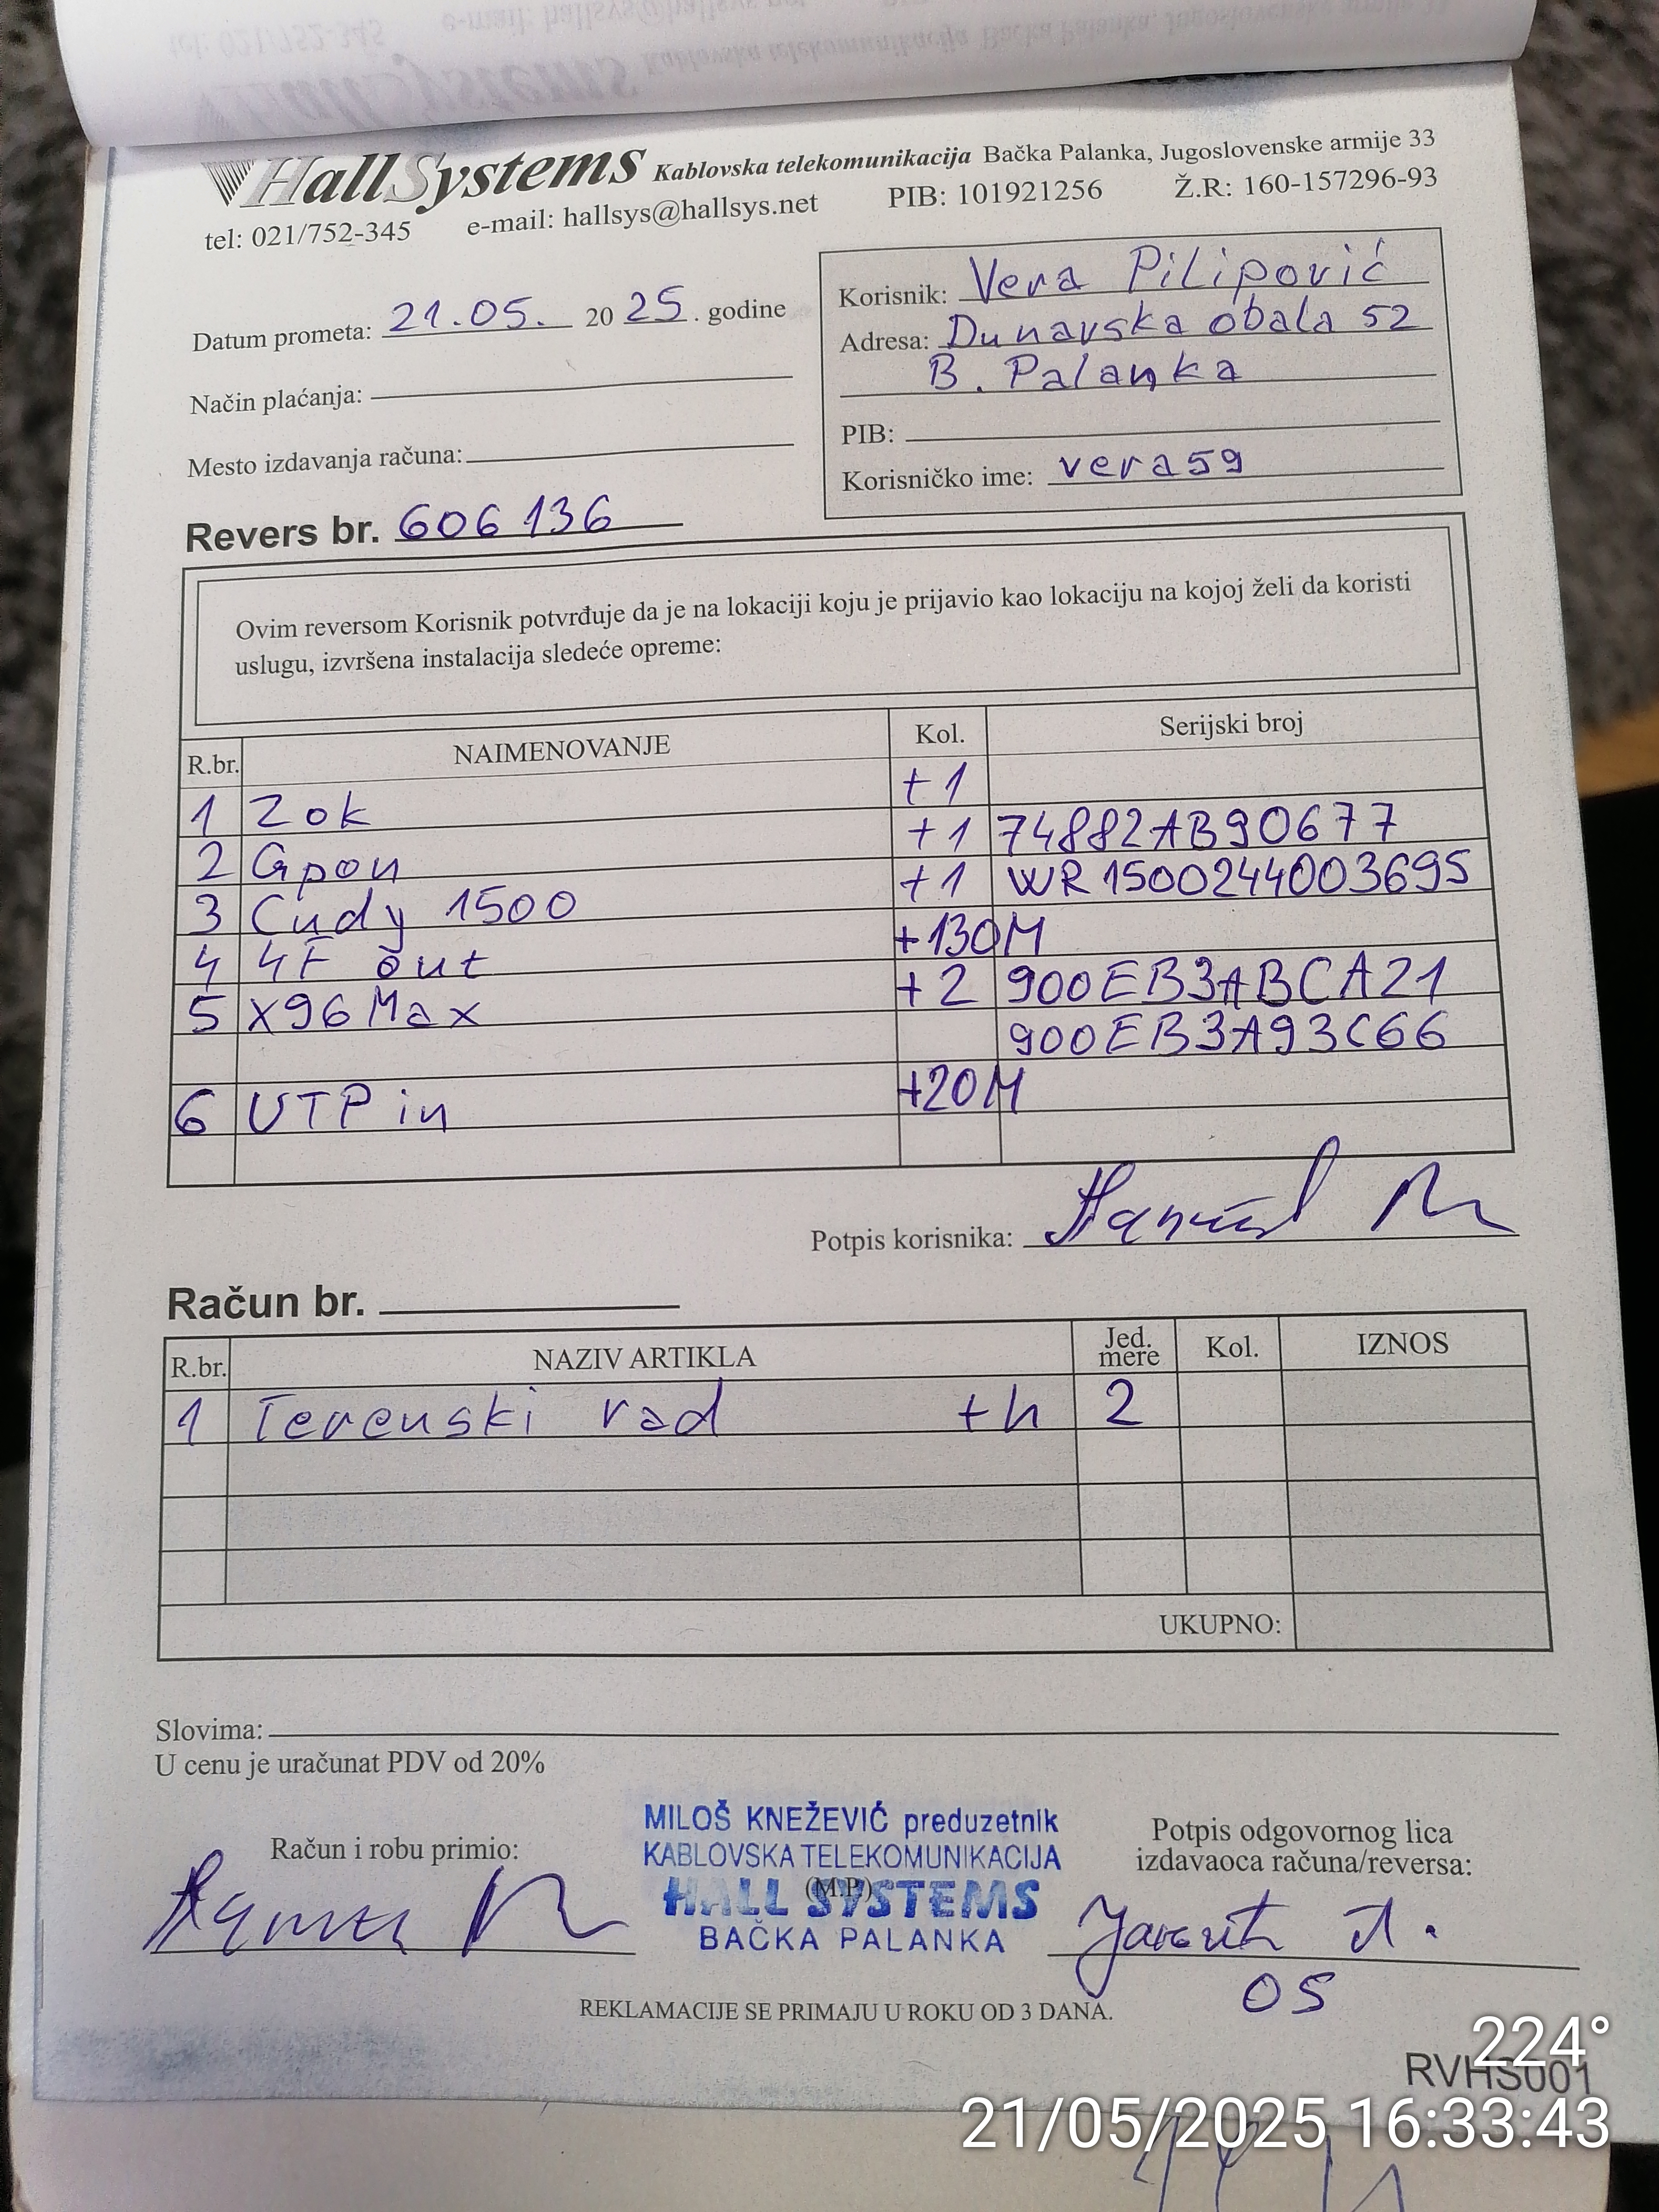 HallSystems Kablovska telekomunikacija Bačka Palanka, Jugoslovenske armije 33
tel: 021/752-345 e-mail: hallsys@hallsys.net PIB: 101921256 Ž.R: 160-157296-93
Datum prometa: 21.05. 20 25. godine
Način plaćanja:
Mesto izdavanja računa:
Korisnik: Vera Pilipović
Adresa: Dunavska obala 52
B. Palanka
PIB:
Korisničko ime: vera59
Revers br. 606136
Ovim reversom Korisnik potvrđuje da je na lokaciji koju je prijavio kao lokaciju na kojoj želi da koristi
uslugu, izvršena instalacija sledeće opreme:
R.br. NAIMENOVANJE Kol. Serijski broj
1 Zok +1
2 Gpon +1 74882AB90677
3 Cudy 1500 +1 WR1500244003695
4 4F out +130M
5 X96Max +2 900EB3ABCA21
900EB3A93C66
6 UTP in +20M
Potpis korisnika:
Račun br.
R.br. NAZIV ARTIKLA Jed. mere Kol. IZNOS
1 Terenski rad +h 2
UKUPNO:
Slovima:
U cenu je uračunat PDV od 20%
Račun i robu primio:
MILOŠ KNEŽEVIĆ preduzetnik
KABLOVSKA TELEKOMUNIKACIJA
(M.P.)
HALL SYSTEMS
BAČKA PALANKA
Potpis odgovornog lica
izdavaoca računa/reversa:
05
REKLAMACIJE SE PRIMAJU U ROKU OD 3 DANA.
224°
RVHS001
21/05/2025 16:33:43